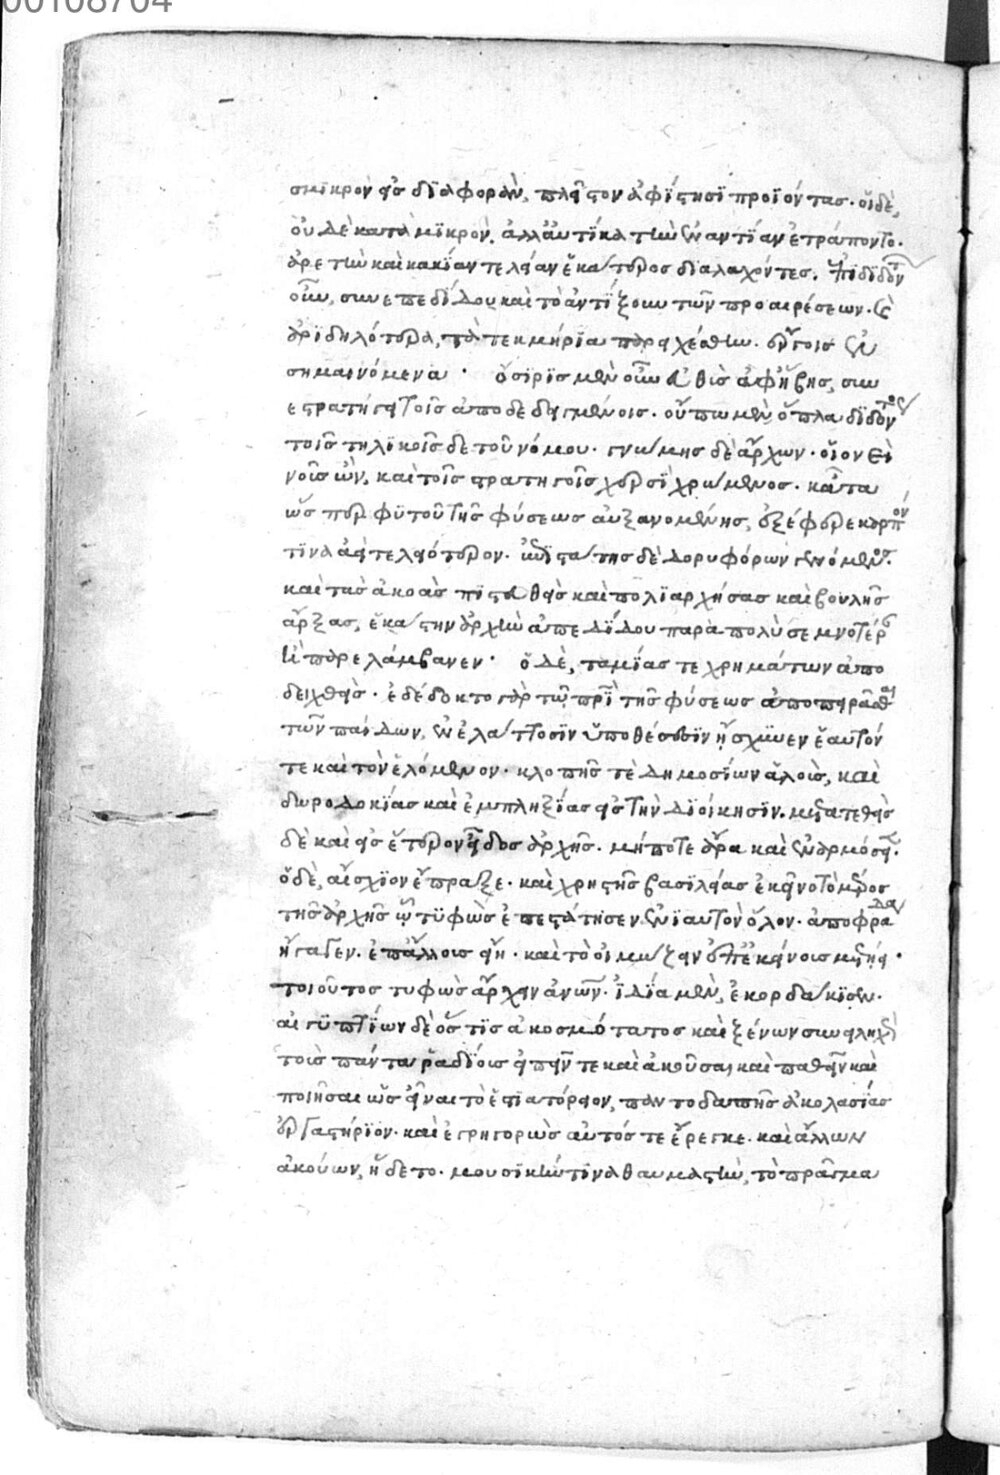 00108704
σμικρὸν εἰς διαφορὰν, πλεῖστον ἀφίστησι προϊόντας. οἱ δὲ,
οὐδὲ κατὰ μικρὸν, ἀλλ' αὐτίκα τὴν ἐναντίαν ἐτράποντο.
ἀρετὴν καὶ κακίαν τελείαν ἑκάτερος διαλαχόντες. ἐπιδιδόντων
οὖν, συνεπεδίδου καὶ τὸ ἀντίξουν τῶν προαιρέσεων. καὶ
ἀριδηλότερα, τὰ τεκμήρια παρείχέσθην. ἔργοις ἐπι
σημαινόμενα. ὄσιρις μὲν οὖν εὐθὺς ἀφ' ἥβης, συν
εστρατήγει τοῖς ἀποδεδειγμένοις. οὔπω μὲν ὅπλα διδόντος
τοῖς τηλικοῖσδε τοῦ νόμου. γνώμης δὲ ἄρχων. οἷον εἰ
νοῦς ὢν, καὶ τοῖς στρατηγοῖς χερσὶ χρώμενος. κᾆτα
ὥσπερ φυτοῦ τῆς φύσεως αὐξανομένης, ἐξέφερε καρπὸν
τινὰ ἀεὶ τελειότερον. ἐπιστάτης δὲ δορυφόρων γενόμενος.
καὶ τὰς ἀκοὰς πιστευθεὶς καὶ πολιαρχήσας καὶ βουλῆς
ἄρξας, ἑκάστην ἀρχὴν ἀπεδίδου παρὰ πολὺ σεμνοτέραν
ἢ παρελάμβανεν. ὁ δὲ, ταμίας τε χρημάτων ἀπο
δειχθεὶς. ἐδέδοκτο γὰρ τῷ πατρὶ τῆς φύσεως ἀποπειρᾶσθαι
τῶν παίδων, ἐν ἐλάττοσιν ὑποθέσεσιν ᾔσχυνεν ἑαυτόν
τε καὶ τὸν ἑλόμενον. κλοπῆς τὲ δημοσίων ἁλοὺς, καὶ
δωροδοκίας καὶ ἐμπληξίας εἰς τὴν διοίκησιν. μετατεθεὶς
δὲ καὶ εἰς ἕτερον εἶδος ἀρχῆς. μήποτε ἄρα καὶ ἐναρμόσει.
ὁ δὲ, αἴσχιον ἔπραξε. καὶ χρηστῆς βασιλείας ἐκεῖνο τὸ μέρος
τῆς ἀρχῆς ᾧ τυφὼς ἐπεστάτησεν, ἐνιαυτὸν ὅλον. ἀποφράδα
ἤγαγεν. ἐπ' ἄλλοις ᾔει. καὶ τὸ οἰμώζειν ἐπ' ἐκείνοις μετῄει.
τοιοῦτος τυφὼς ἄρχειν ἀνθρώπων. ἰδίᾳ μὲν, ἐκορδάκιζεν.
αἰγυπτίων δὲ ὅστις ἀκοσμότατος καὶ ξένων συνειλημένος
τοῖς πάντα ῥαδίοις εἰπεῖν τε καὶ ἀκοῦσαι καὶ παθεῖν καὶ
ποιῆσαι ὡς εἶναι τὸ ἑστιατόρειον, παντοδαπῆς ἀκολασίας
ἐργαστήριον. καὶ ἐγρηγορὼς αὐτός τε ἔρεγκε. καὶ ἄλλων
ἀκούων, ἥδετο. μουσικήν τινα θαυμαστὴν, τὸ πρᾶγμα